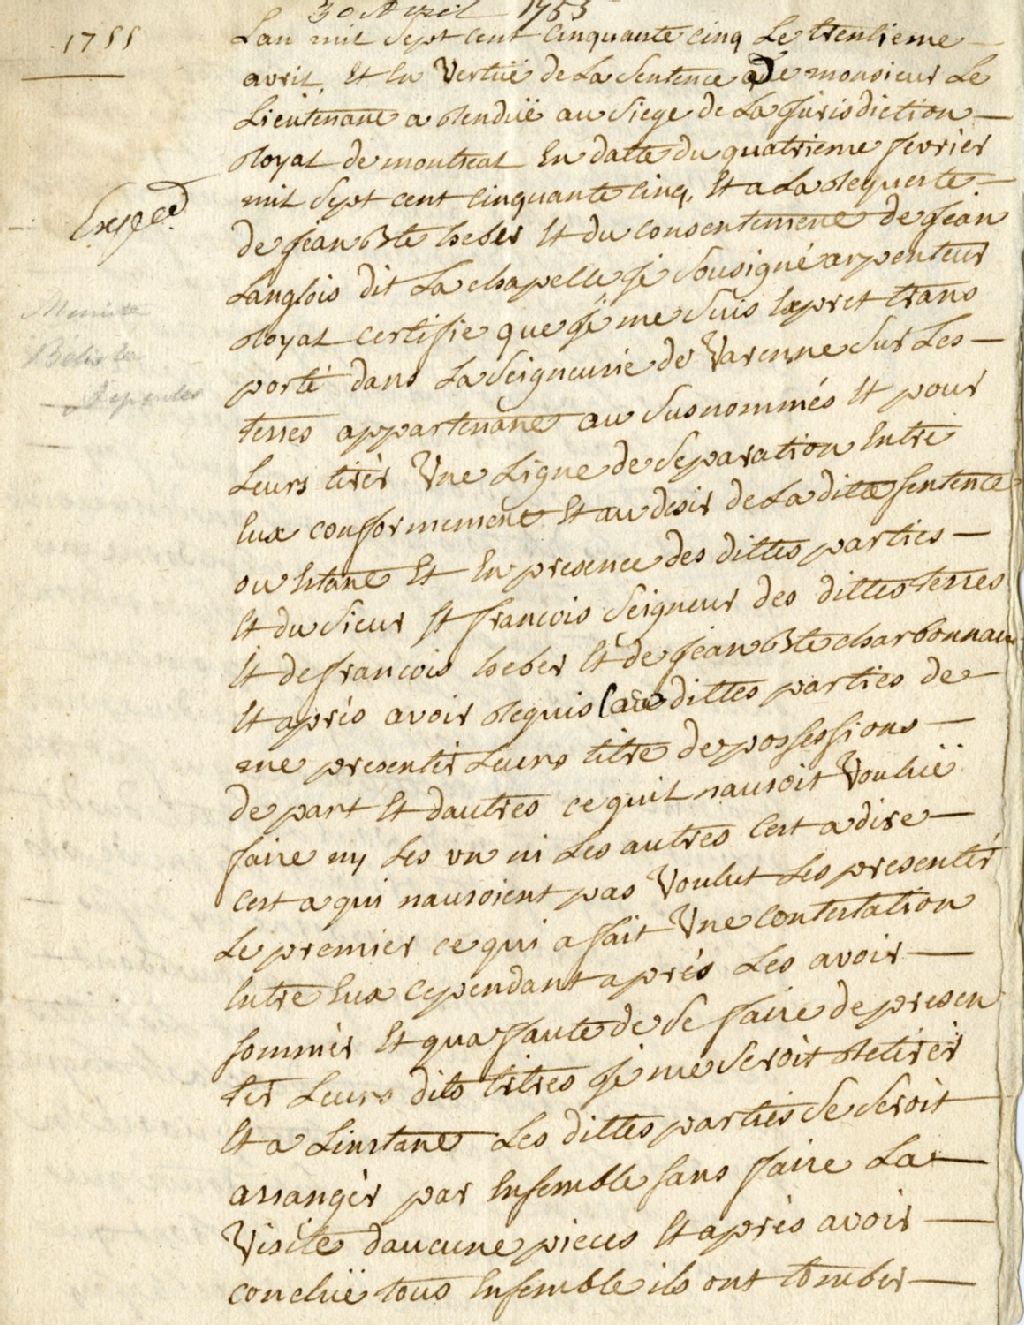 30 Avril 1755
1755
Lan mil Sept cent Cinquante cinq Le trentieme
avril, Et En Vertuë de La Sentence De monsieur Le
Lieutenant a Renduë au Siege de La Jurisdiction
Royal de montreal En datte du quatrieme fevrier
mil Sept cent Cinquante Cinq, Et a La Requeste
de Jean Bte heber Et du Consentement de Jean
Langlois dit La chapelle Je Sousigné arpenteur
Royal Certifie que Je me Suis Expret trans
porté dans La Seigneurie de Varenne Sur Les
terres appartenant au Susnommés Et pour
Leurs tirér Une Ligne de Separation Entre
Eux conformement Et au desir de La ditte Sentence
ou Etant Et En presence des dittes parties
Et du Sieur St francois Seigneur des dittes terres
Et de francois heber Et de Jean Bte charbonnau
Et aprés avoir Requis Les dittes parties de
me presentér Leurs titre de possessions
de part Et dautres ce quil nauroit Vouluë
faire ny Les un ni Les autres Cest a dire
Cest a qui nauroient pas Voulut Les presentér
Le premier ce qui a fait Une Contestation
Entre Eux cependant aprés Les avoir
Sommér Et qua faute de Se faire de presen
tér Leurs dits titres Je me Seroit Retirér
Et a Linstant Les dittes parties Se Seroit
arrangér par Ensemble Sans faire La
Visite daucune pieces Et aprés avoir
concluë tous Ensemble ils ont tomber
Minute